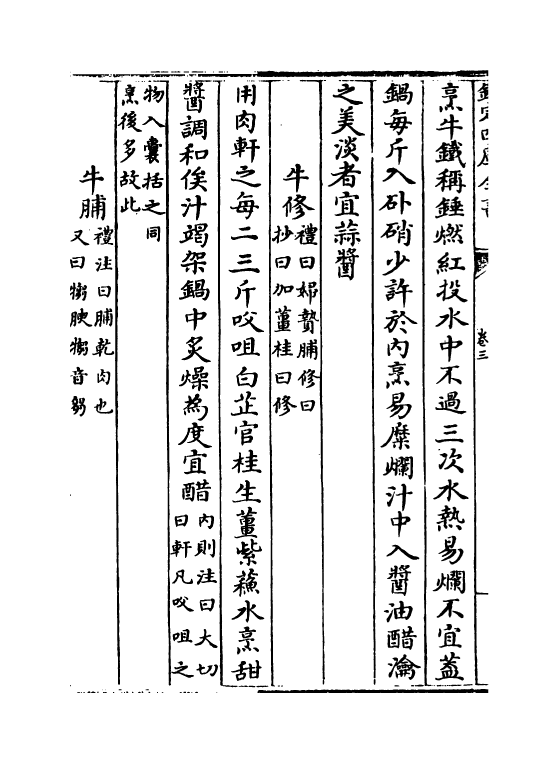 欽定四庫全書
卷三
烹牛鐵稱錘燃紅投水中不過三次水熱易爛不宜葢
鍋每斤入朴硝少許於內烹易糜爛汁中入醬油醋瀹
之美淡者宜蒜醬
牛修禮曰婦贄脯修曰
抄曰加薑桂曰修
用肉軒之每二三斤㕮咀白芷官桂生薑紫蘓水烹甜
醬調和俟汁竭架鍋中炙燥為度宜醋內則注曰大切
曰軒凡㕮咀之
物入囊括之同
烹後多故此
牛脯禮注曰脯乾肉也
又曰
音